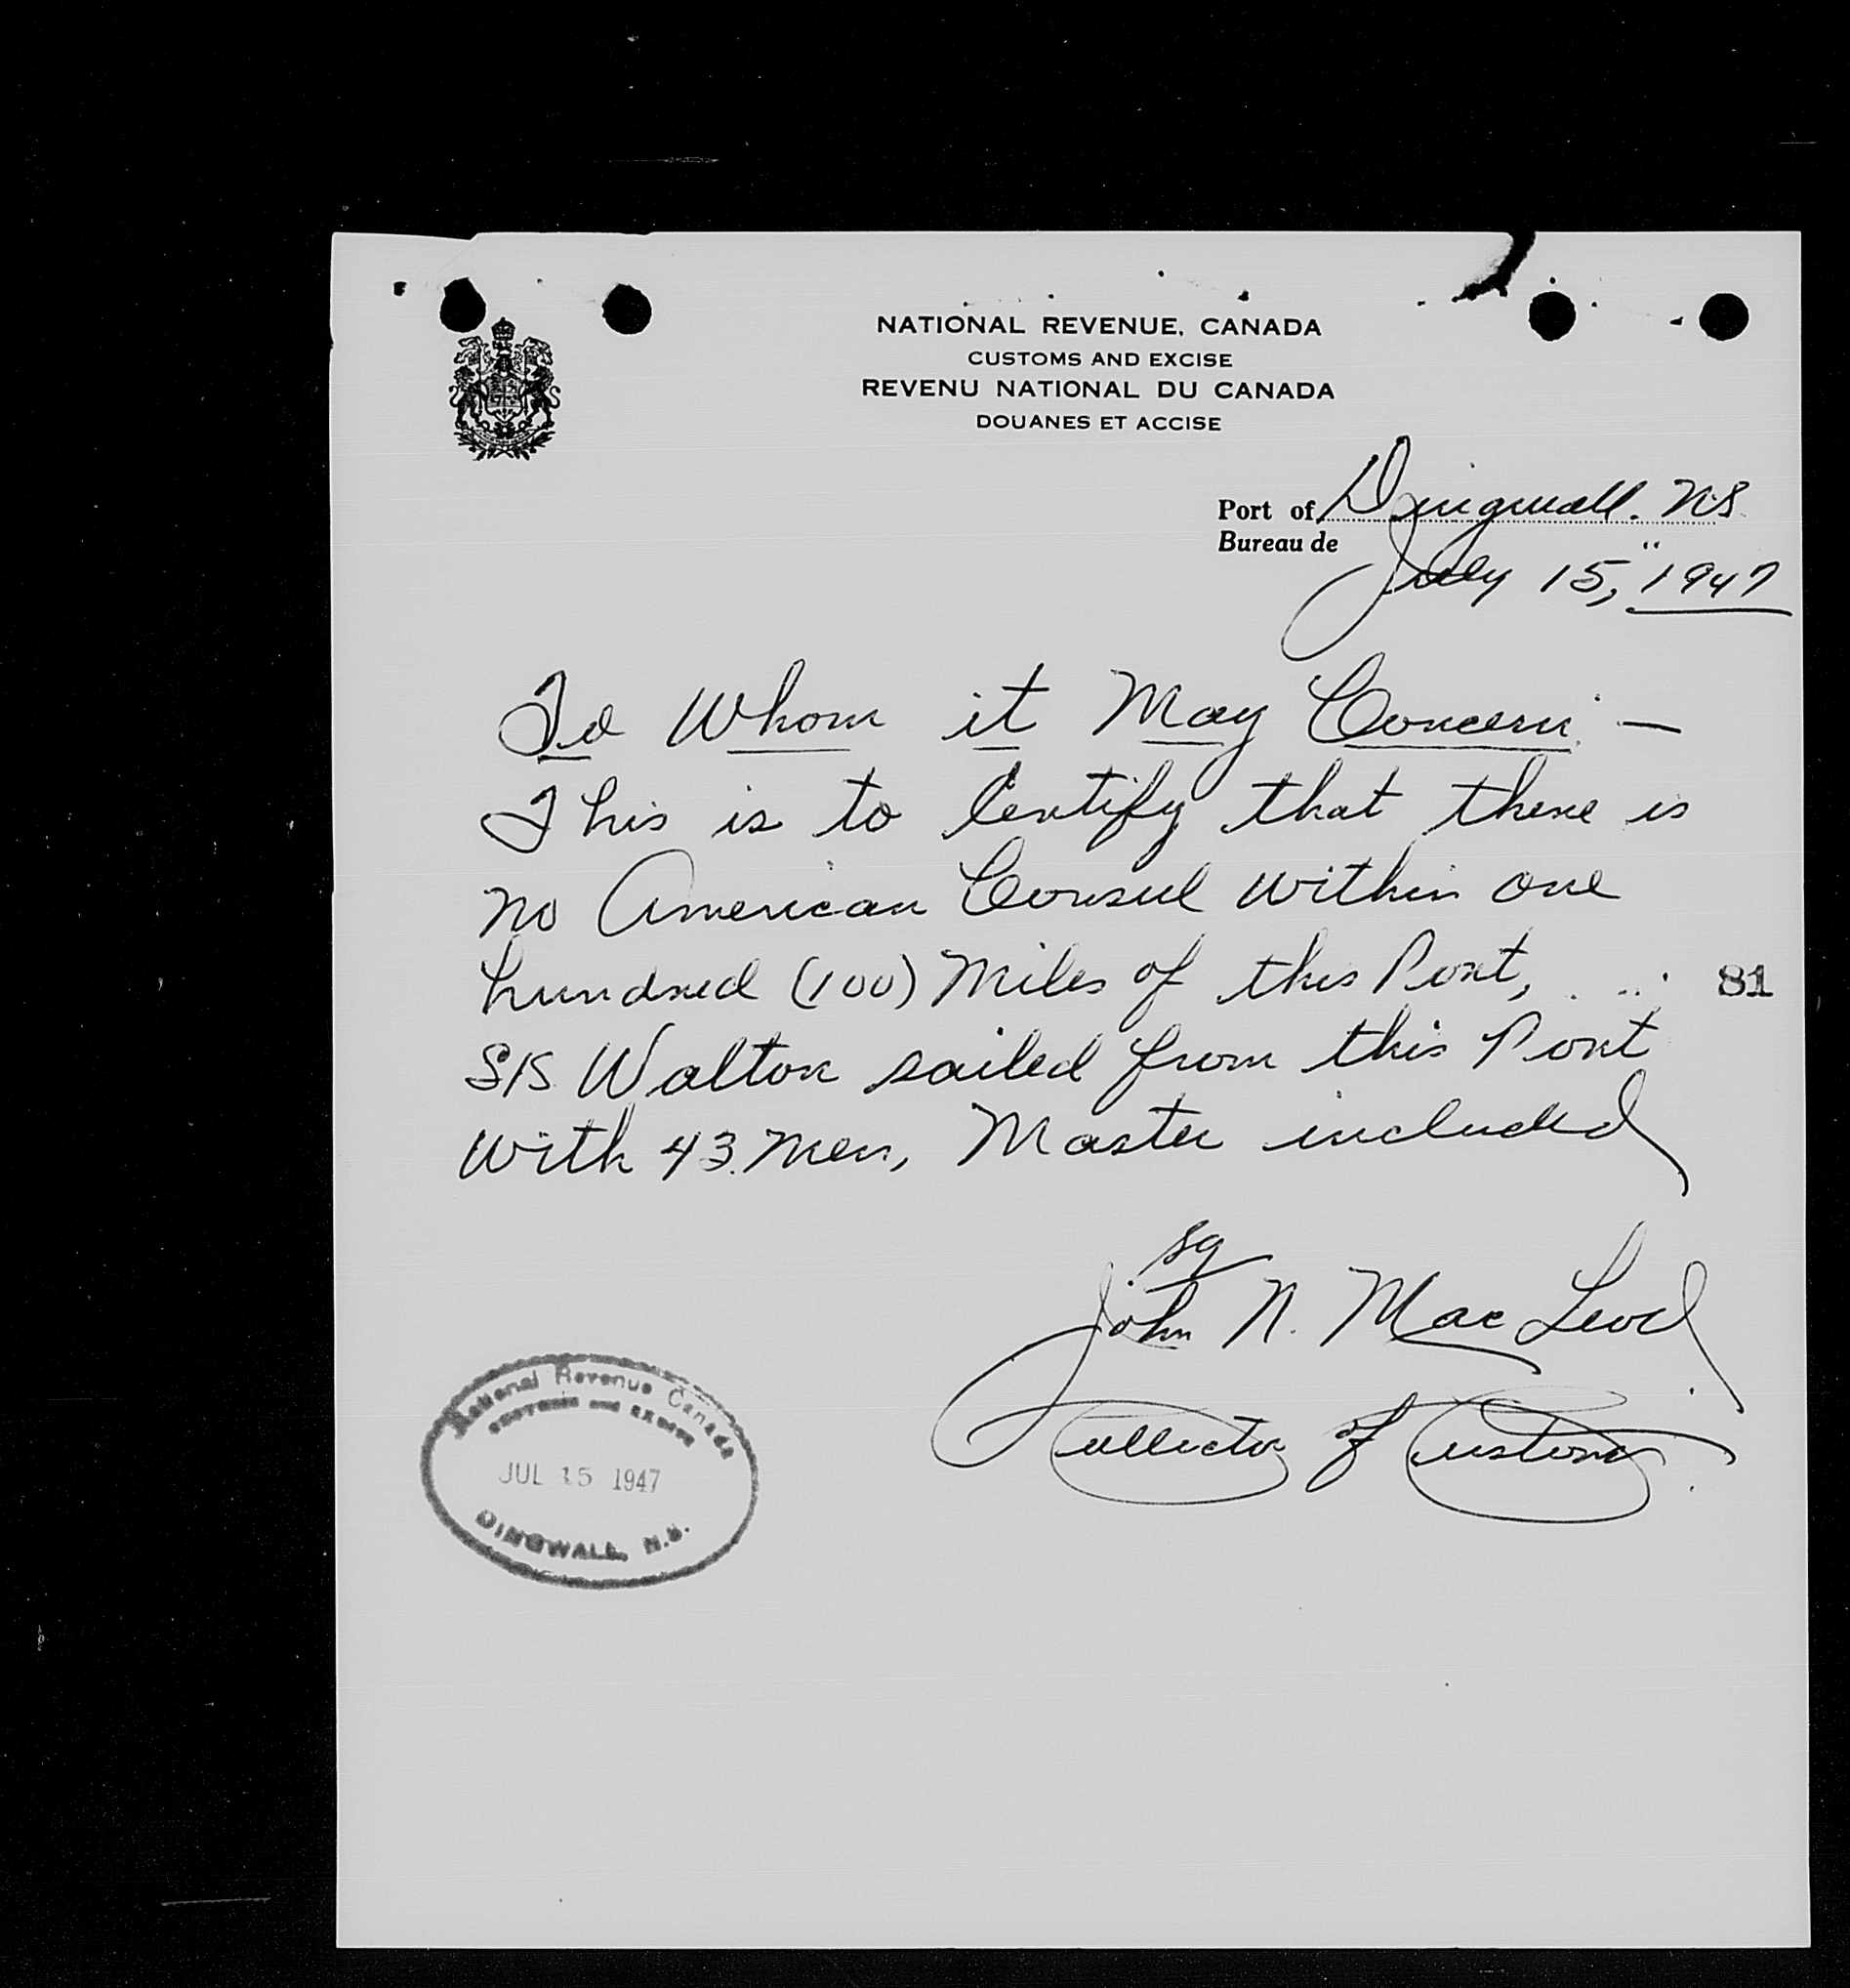 NATIONAL REVENUE, CANADA
CUSTOMS AND EXCISE
REVENU NATIONAL DU CANADA
DOUANES ET ACCISE
Port of Dingwall. N.S.
Bureau de
July 15, 1947
To Whom it May Concern. —
This is to Certify that there is
no American Consul within one
hundred (100) Miles of this Port,
81
S/S Walton sailed from this Port
with 43. Men, Master included
sg
John N. MacLeod
Collector of Customs.
National Revenue Canada
CUSTOMS and EXCISE
JUL 15 1947
DINGWALL, N.S.